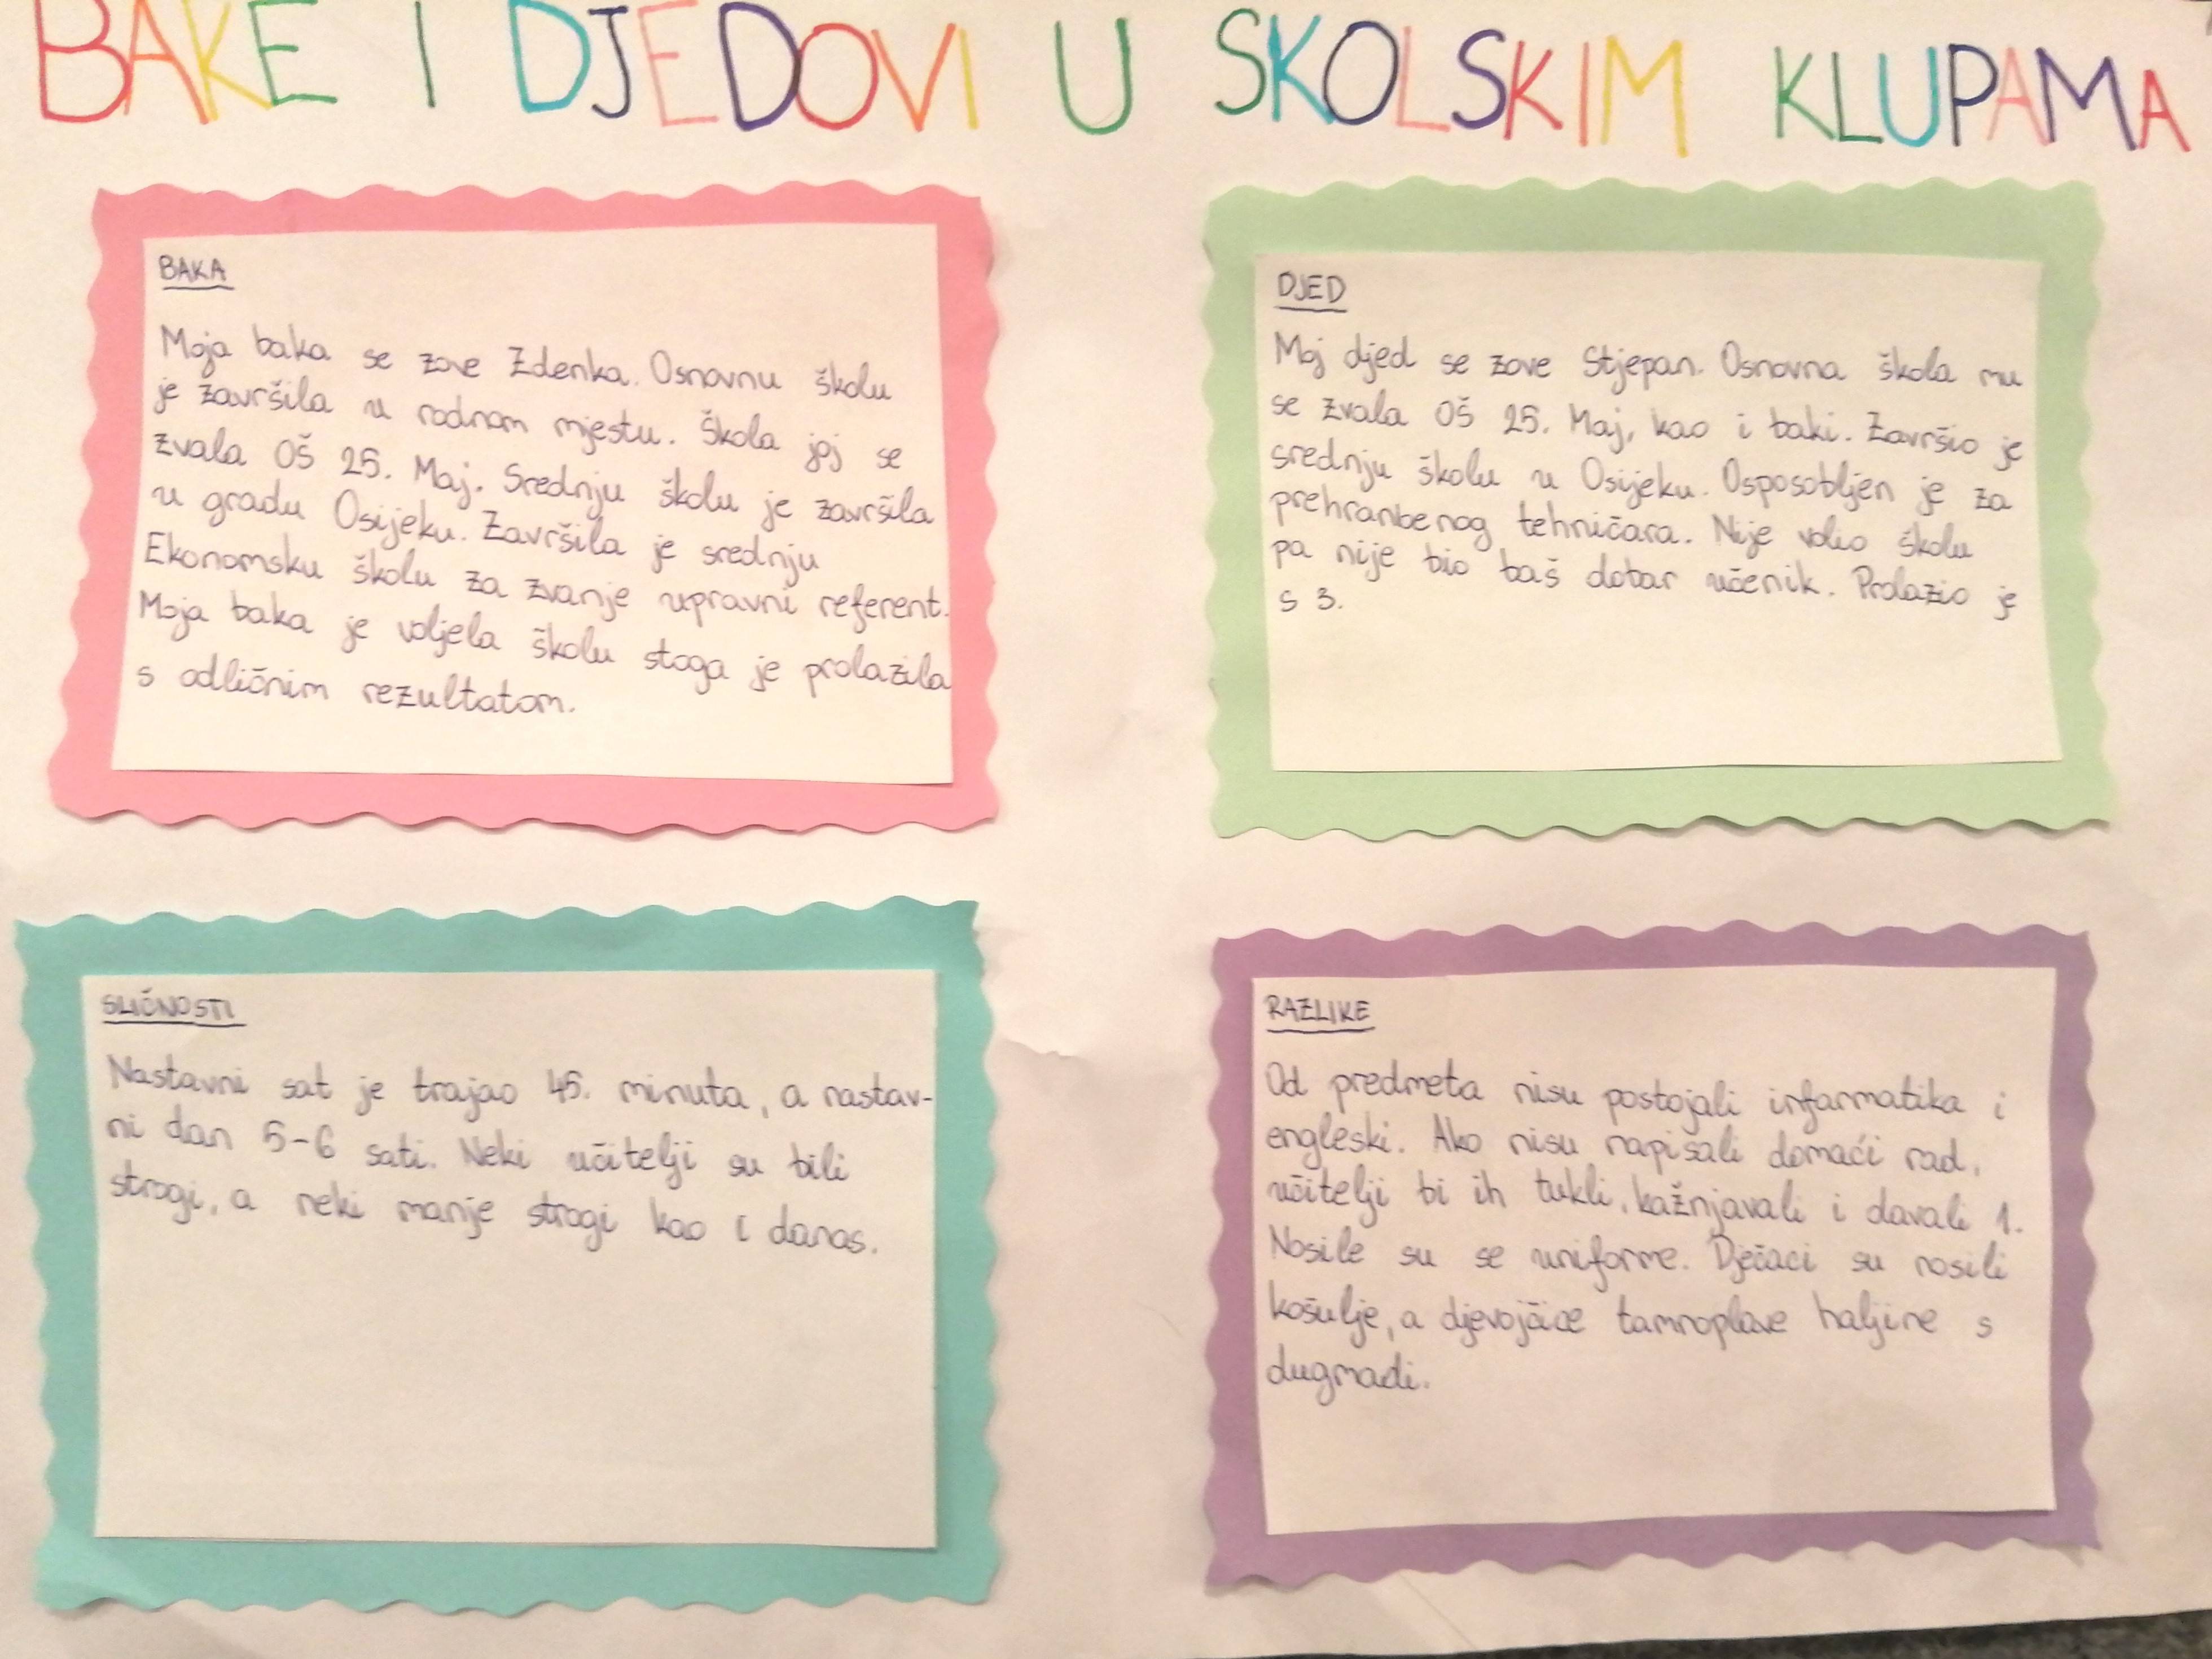 BAKE I DJEDOVI U SKOLSKIM KLUPAMA
BAKA
Moja baka se zove Zdenka. Osnovnu školu
je završila u rodnom mjestu. Škola joj se
zvala OŠ 25. Maj. Srednju školu je završila
u gradu Osijeku. Završila je srednju
Ekonomsku školu za zvanje upravni referent.
Moja baka je voljela školu stoga je prolazila
s odličnim rezultatom.
DJED
Moj djed se zove Stjepan. Osnovna škola mu
se zvala OŠ 25. Maj, kao i baki. Završio je
srednju školu u Osijeku. Osposobljen je za
prehranbenog tehničara. Nije volio školu
pa nije bio baš dobar učenik. Prolazio je
s 3.
SLIČNOSTI
Nastavni sat je trajao 45. minuta, a nastav-
ni dan 5-6 sati. Neki učitelji su bili
strogi, a neki manje strogi kao i danas.
RAZLIKE
Od predmeta nisu postojali informatika i
engleski. Ako nisu napisali domaći rad,
učitelji bi ih tukli, kažnjavali i davali 1.
Nosile su se uniforme. Dječaci su nosili
košulje, a djevojčice tamnoplave haljine s
dugmadi.